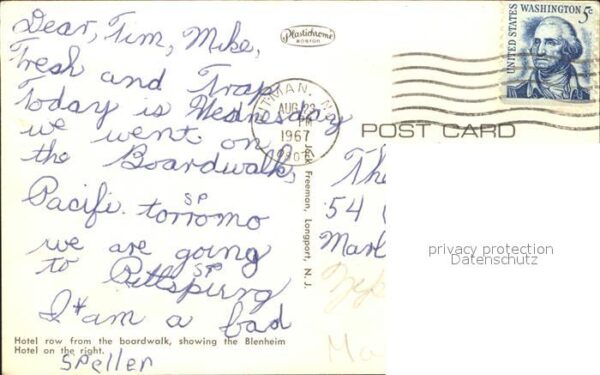 Dear, Tim, Mike,
Fresh and Trap
Today is Wednesday
we went on
the Boardwalk,
Pacific. SP torromo
we are going
to SP Pittspurng
I am a bad
speller
Hotel row from the boardwalk, showing the Blenheim
Hotel on the right.
Plastichrome
BOSTON
PITMAN, N.J.
AUG 23
PM
1967
08071
Jack Freeman, Longport, N. J.
POST CARD
UNITED STATES
WASHINGTON 5c
The
54
Marl
privacy protection
Datenschutz
Ma